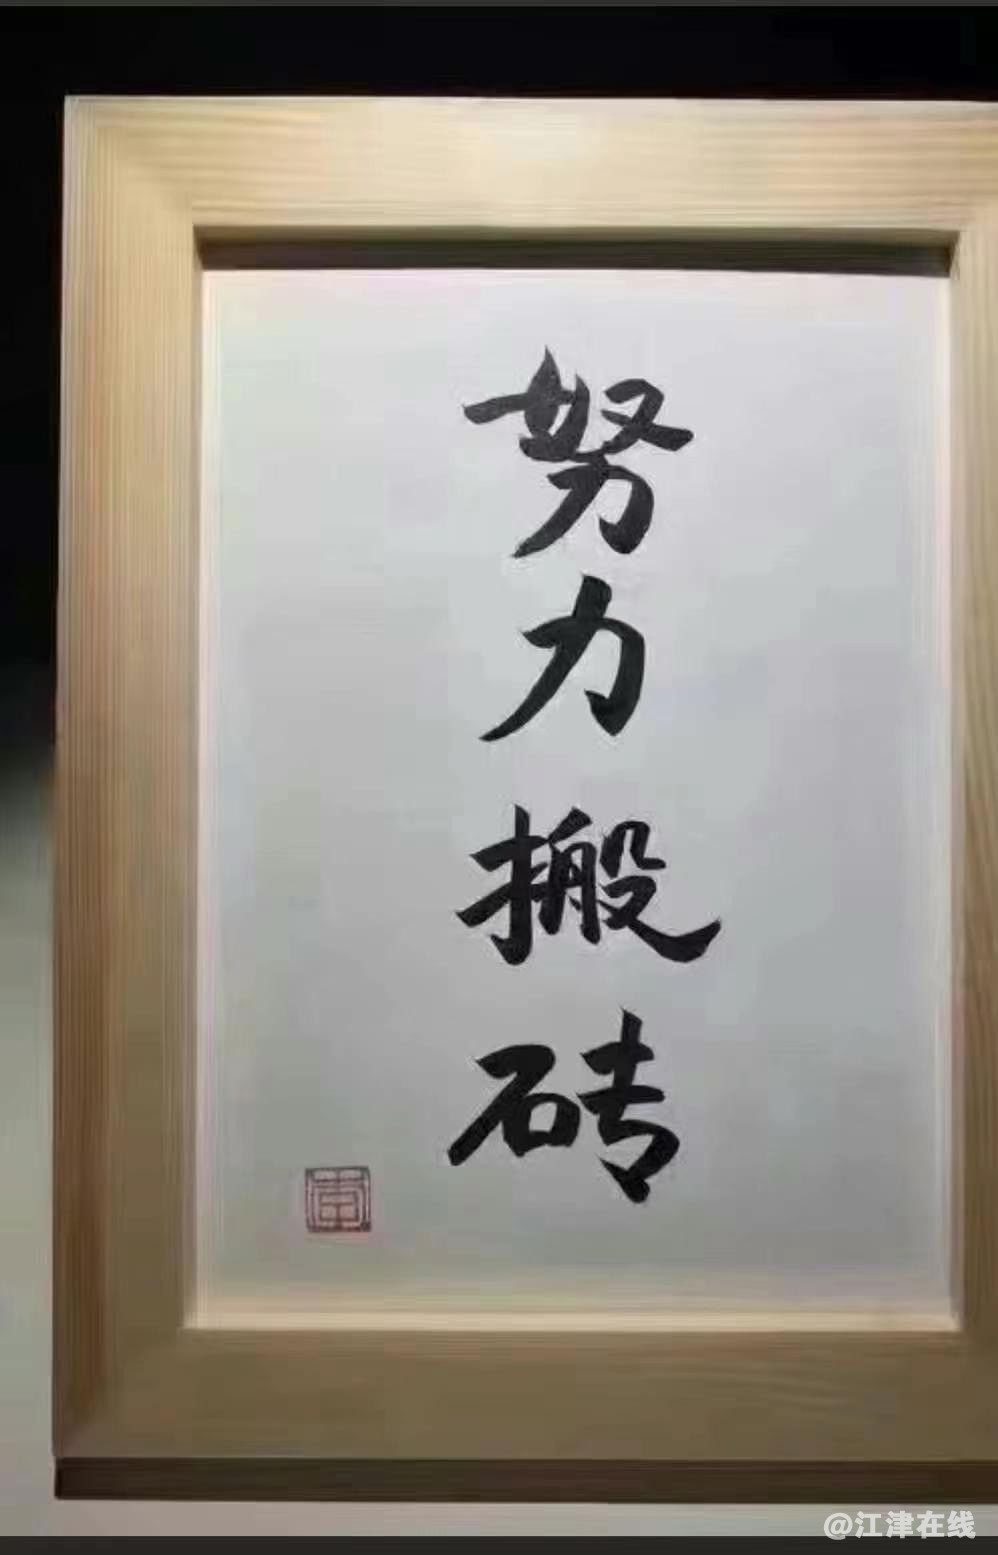 努力搬砖
@江津在线